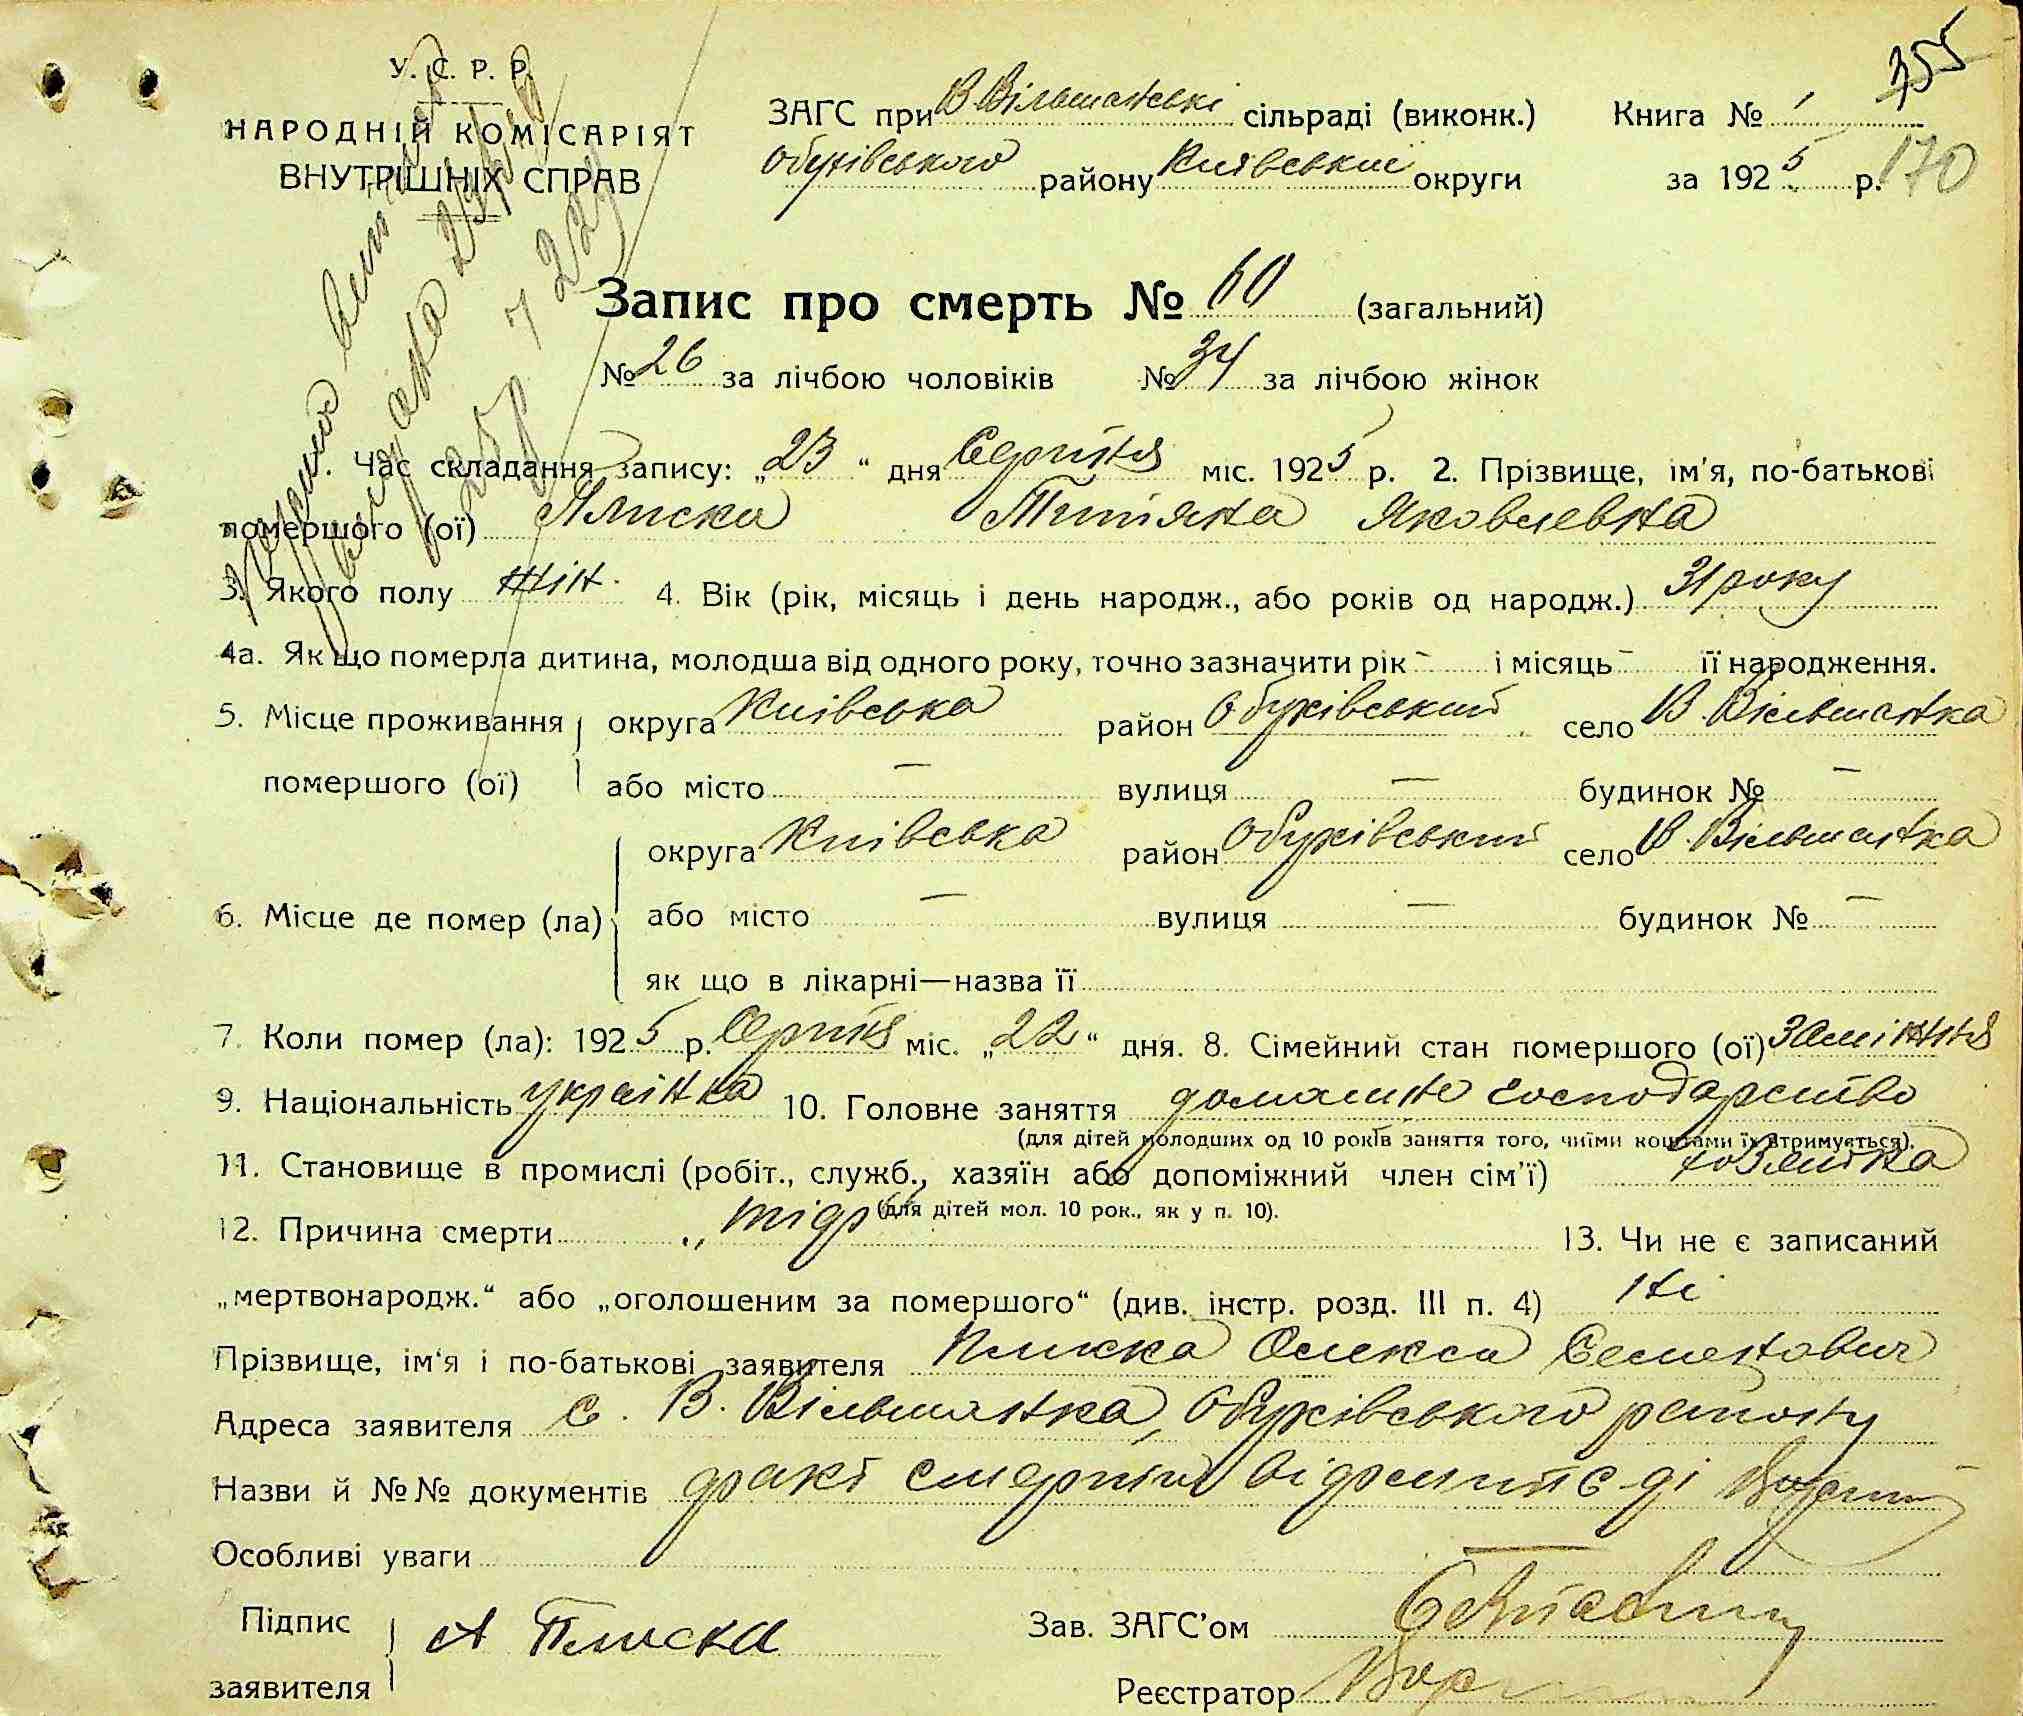 У. С. Р. Р.
НАРОДНІЙ КОМІСАРІЯТ
ВНУТРІШНІХ СПРАВ
355
ЗАГС при В Вільшанські сільраді (виконк.) Книга № 1
Обухівського району Київської округи за 1925 р. 170
Запис про смерть № 60 (загальний)
№ 26 за лічбою чоловіків № 34 за лічбою жінок
1. Час складання запису: „23“ дня Серпня міс. 1925 р. 2. Прізвище, ім'я, по-батькові
помершого (ої) Плиска Титяна Яковлевна
3. Якого полу жін. 4. Вік (рік, місяць і день народж., або років од народж.) 31 року
4а. Як що померла дитина, молодша від одного року, точно зазначити рік - і місяць - її народження.
5. Місце проживання округа Київська район Обухівський село В. Вільшанка
помершого (ої) або місто — вулиця — будинок № —
округа Київська район Обухівський село В. Вільшанка
6. Місце де помер (ла) або місто — вулиця — будинок № —
як що в лікарні—назва її
7. Коли помер (ла): 1925 р. Серпня міс. „22“ дня. 8. Сімейний стан помершого (ої) Заміжня
9. Національність українка 10. Головне заняття домашне господарство
(для дітей молодших од 10 років заняття того, чиїми коштами їх втримується).
11. Становище в промислі (робіт., служб., хазяїн або допоміжний член сім'ї)
(для дітей мол. 10 рок., як у п. 10).
12. Причина смерти 13. Чи не є записаний
„мертвонародж.“ або „оголошеним за помершого“ (див. інстр. розд. III п. 4) ні
Прізвище, ім'я і по-батькові заявителя Плиска Олекса Семенович
Адреса заявителя с. В. Вільшанка, Обухівського району
Назви й №№ документів факт смерти
Особливі уваги
Підпис
заявителя А Плиска
Зав. ЗАГС'ом
Реєстратор